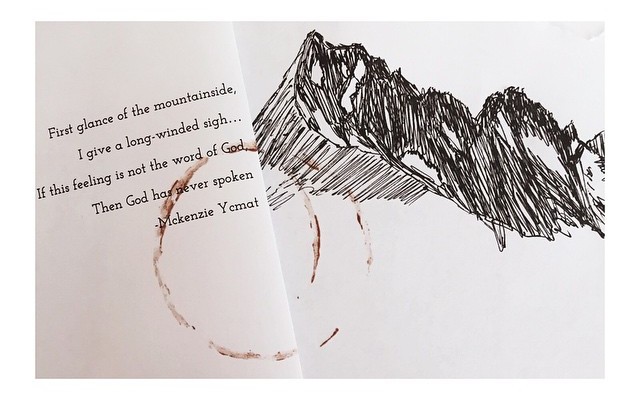 First glance of the mountainside,
I give a long-winded sigh...
If this feeling is not the word of God
Then God has never spoken
-Mckenzie Ycmat